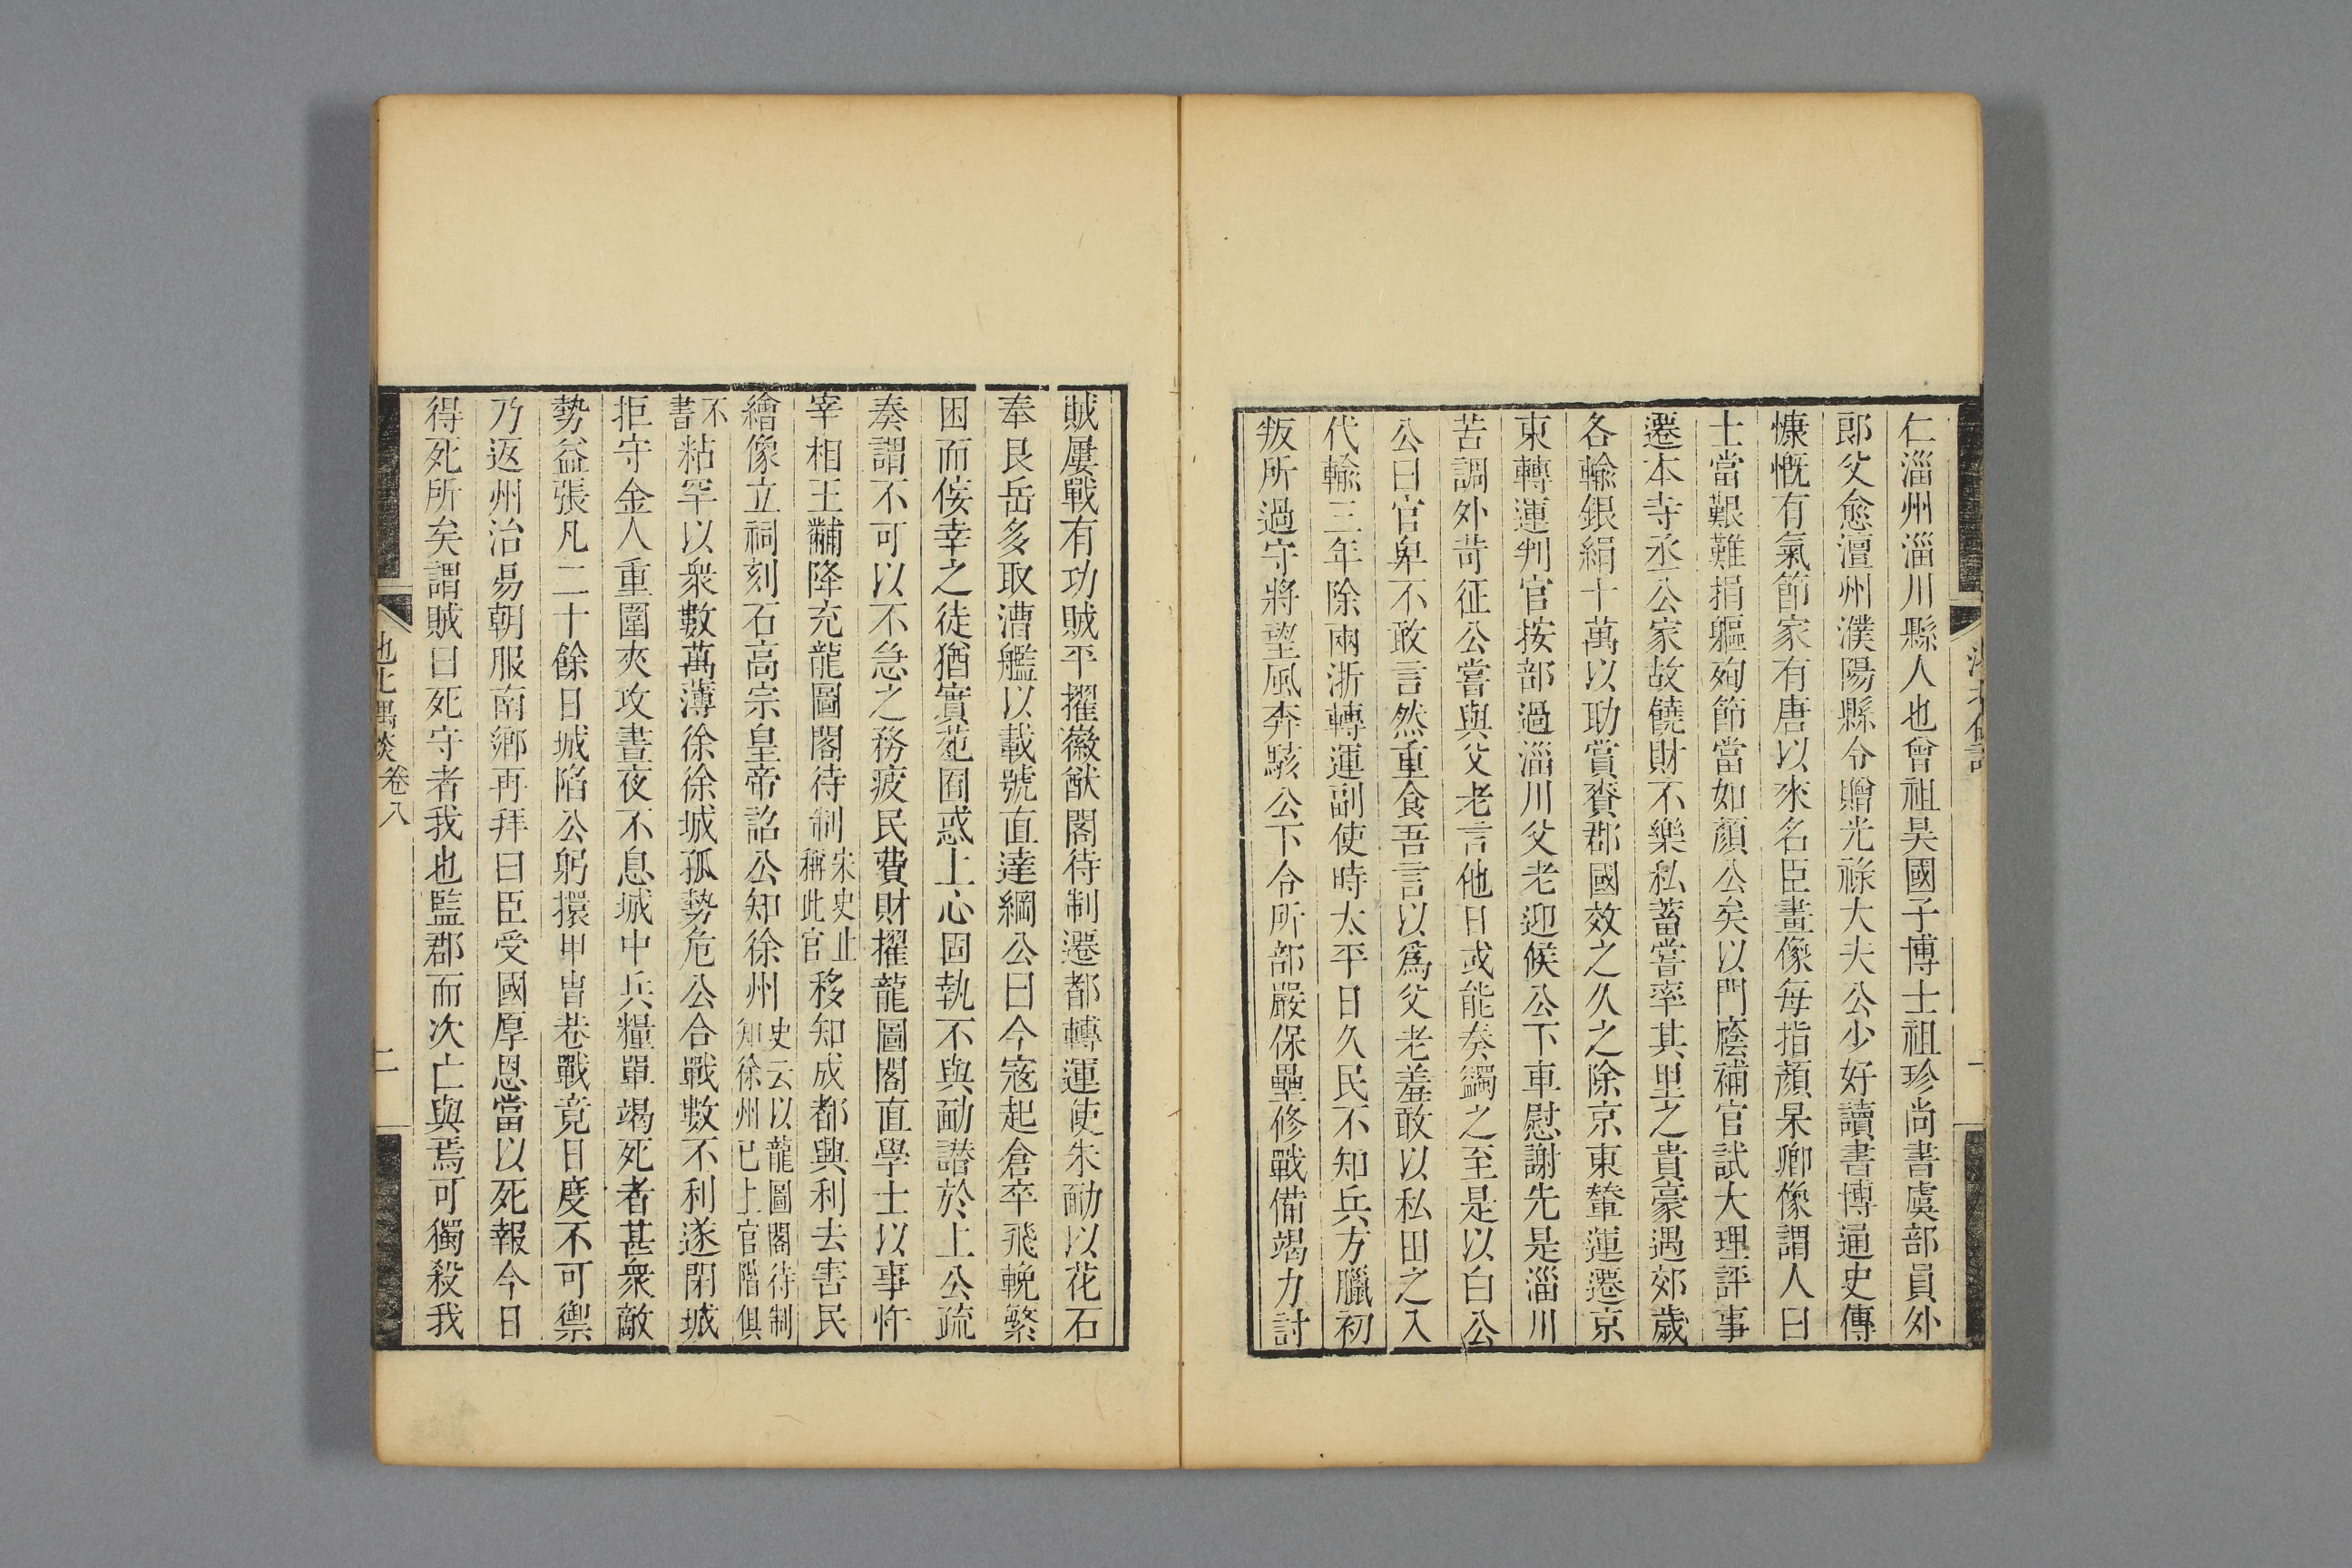 仁淄州淄川縣人也曾祖昊國子博士祖珍尚書虞部員外
郎父愈澶州濮陽縣令贈光祿大夫公少好讀書博通史傳
慷慨有氣節家有唐以來名臣畫像每指顏杲卿像謂人曰
士當艱難捐軀殉節當如顏公矣以門廕補官試大理評事
遷本寺丞公家故饒財不樂私蓄嘗率其里之貴豪遇郊歲
各輸銀絹十萬以助賞賚郡國效之久之除京東輦運遷京
東轉運判官按部過淄川父老迎候公下車慰謝先是淄川
苦調外苛征公嘗與父老言他日或能奏蠲之至是以白公
公曰官卑不敢言然重食吾言以爲父老羞敢以私田之入
代輸三年除兩浙轉運副使時太平日久民不知兵方臘初
叛所過守將望風奔駭公下令所部嚴保壘修戰備竭力討
賊屢戰有功賊平擢徽猷閣待制遷都轉運使朱勔以花石
奉艮岳多取漕艦以載號直達綱公曰今寇起倉卒飛輓繁
困而佞幸之徒猶實苑囿惑上心固執不與勔譖於上公疏
奏謂不可以不急之務疲民費財擢龍圖閣直學士以事忤
宰相王黼降充龍圖閣待制宋史止稱此官移知成都興利去害民
繪像立祠刻石高宗皇帝詔公知徐州史云以龍圖閣待制知徐州已上官階俱
不書粘罕以衆數萬薄徐徐城孤勢危公合戰數不利遂閉城
拒守金人重圍夾攻晝夜不息城中兵糧單竭死者甚衆敵
勢益張凡二十餘日城陷公躬擐甲冑巷戰竟日度不可禦
乃返州治易朝服南鄉再拜曰臣受國厚恩當以死報今日
得死所矣謂賊曰死守者我也監郡而次亡與焉可獨殺我
池北偶談 卷八
二